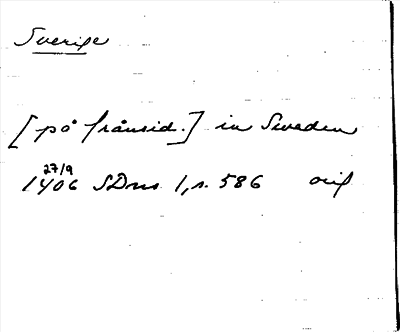 Sverige
[på frånsid.] in Sweden
27/9
1406 SDns 1, s. 586 orig